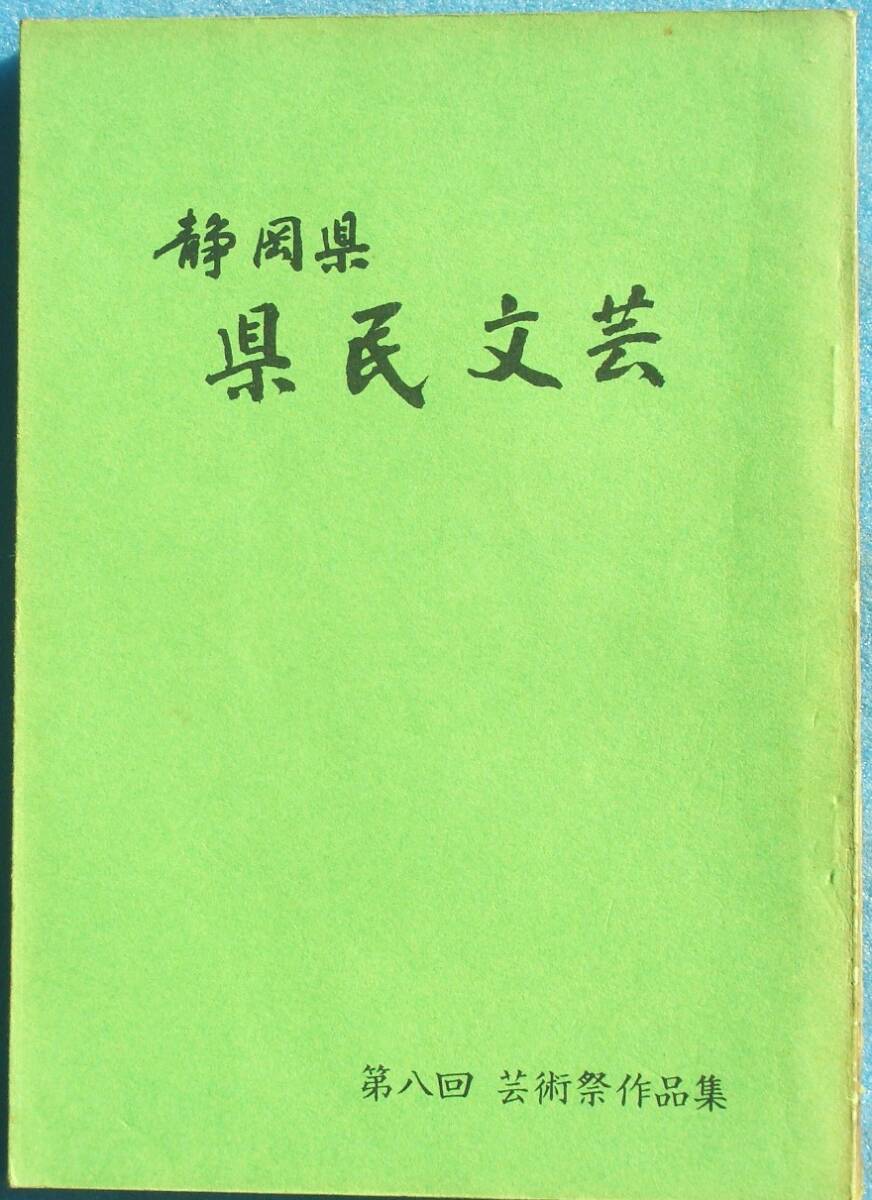 静岡県
県民文芸
第八回 芸術祭作品集